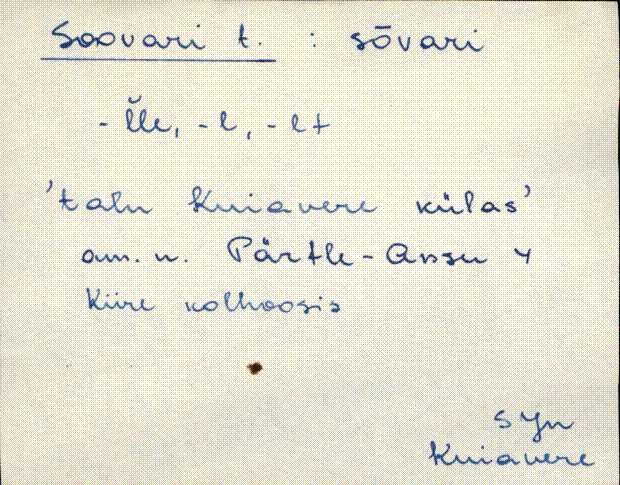 Soovari t. : sōvari
- l̆le, -l, -lt
'talu Kuiavere külas'
am. n. Pärtle-Ansu
Kiire kolhoosis
SJn
Kuiavere